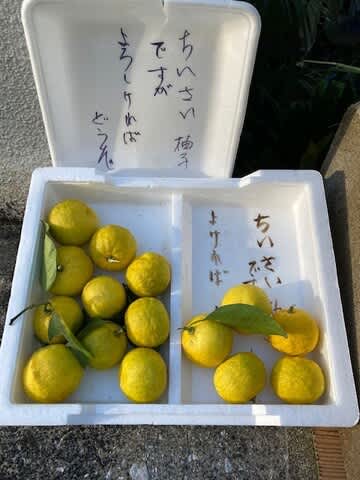 ちいさい 柚子
ですが
よろしければ
どうぞ
ちいさい
です
よければ